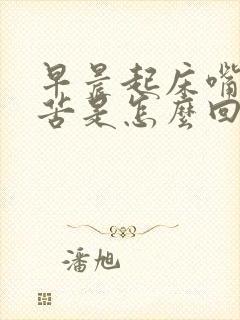 早晨起床嘴
苦是怎麼回
潘旭